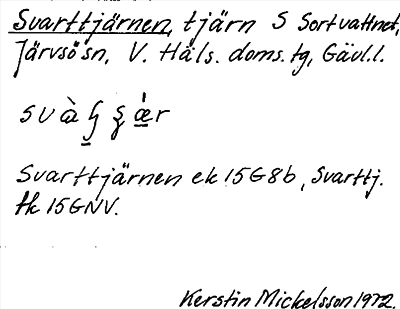 Svarttjärnen, tjärn S Sortvattnet,
Järvsö sn, V. Häls. doms. tg, Gävl.l.
Svarttjärnen ek 15G8b, Svarttj.
tk 15GNV.
Kerstin Mickelsson 1972.